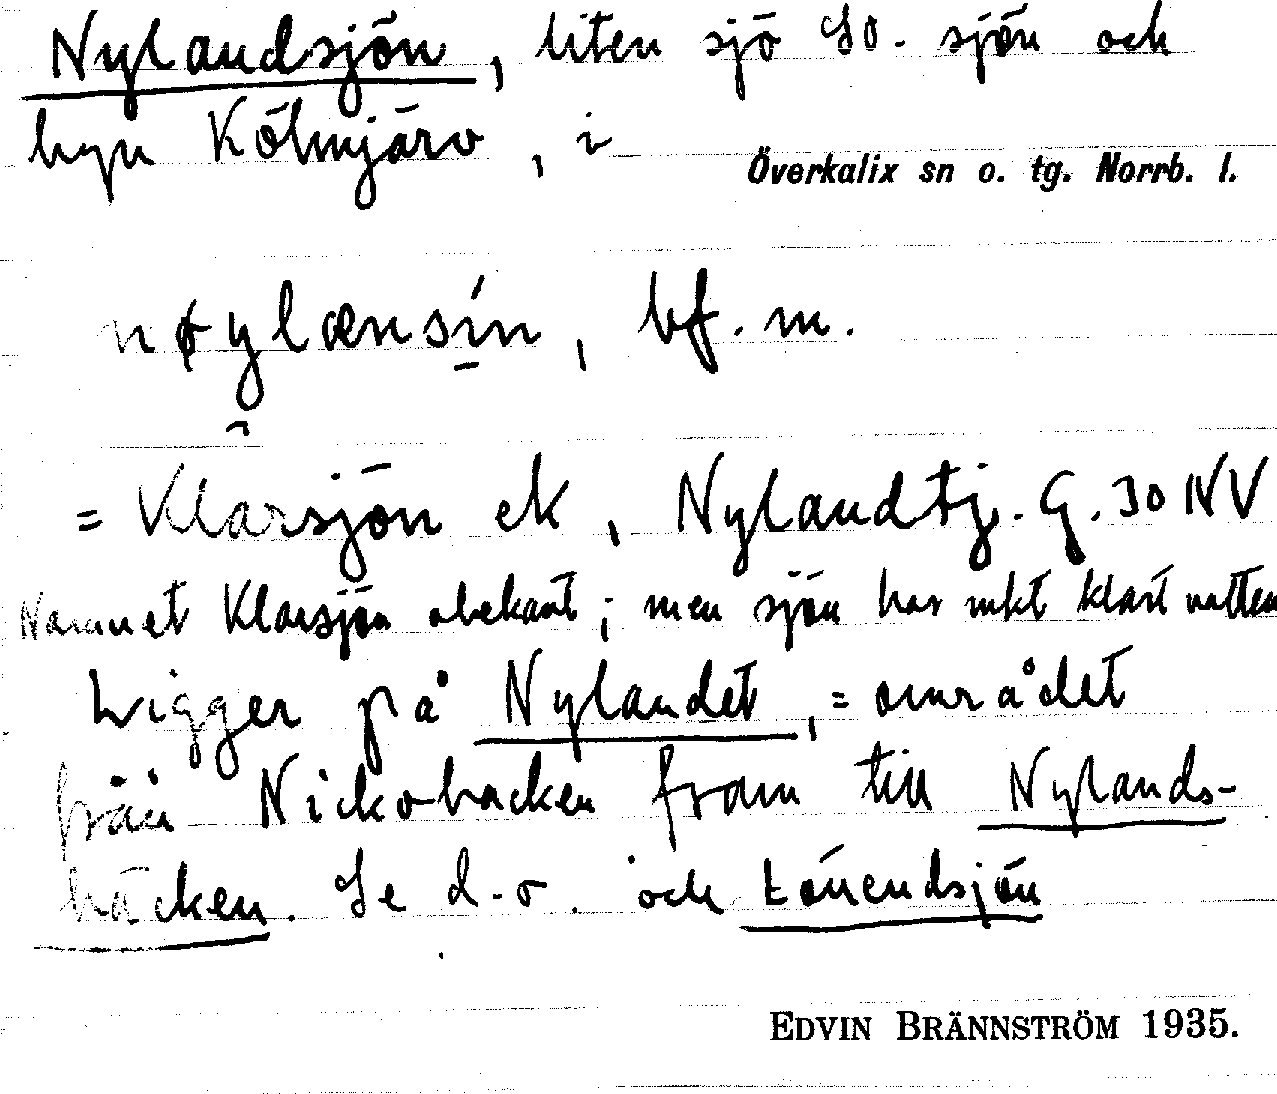 Nylandsjön, liten sjö SO. sjön och
byn Kölmjärv, i
Överkalix sn o. tg. Norrb. l.
nøylænsín, bf. m.
= Klarsjön ek, Nylandtj. G. 30 NV
Namnet Klarsjön obekant; men sjön har mkt klart vatten
Ligger på Nylandet, = området
från Nickobacken fram till Nylands-
bäcken. Se d.o. och Lönendsjön
EDVIN BRÄNNSTRÖM 1935.